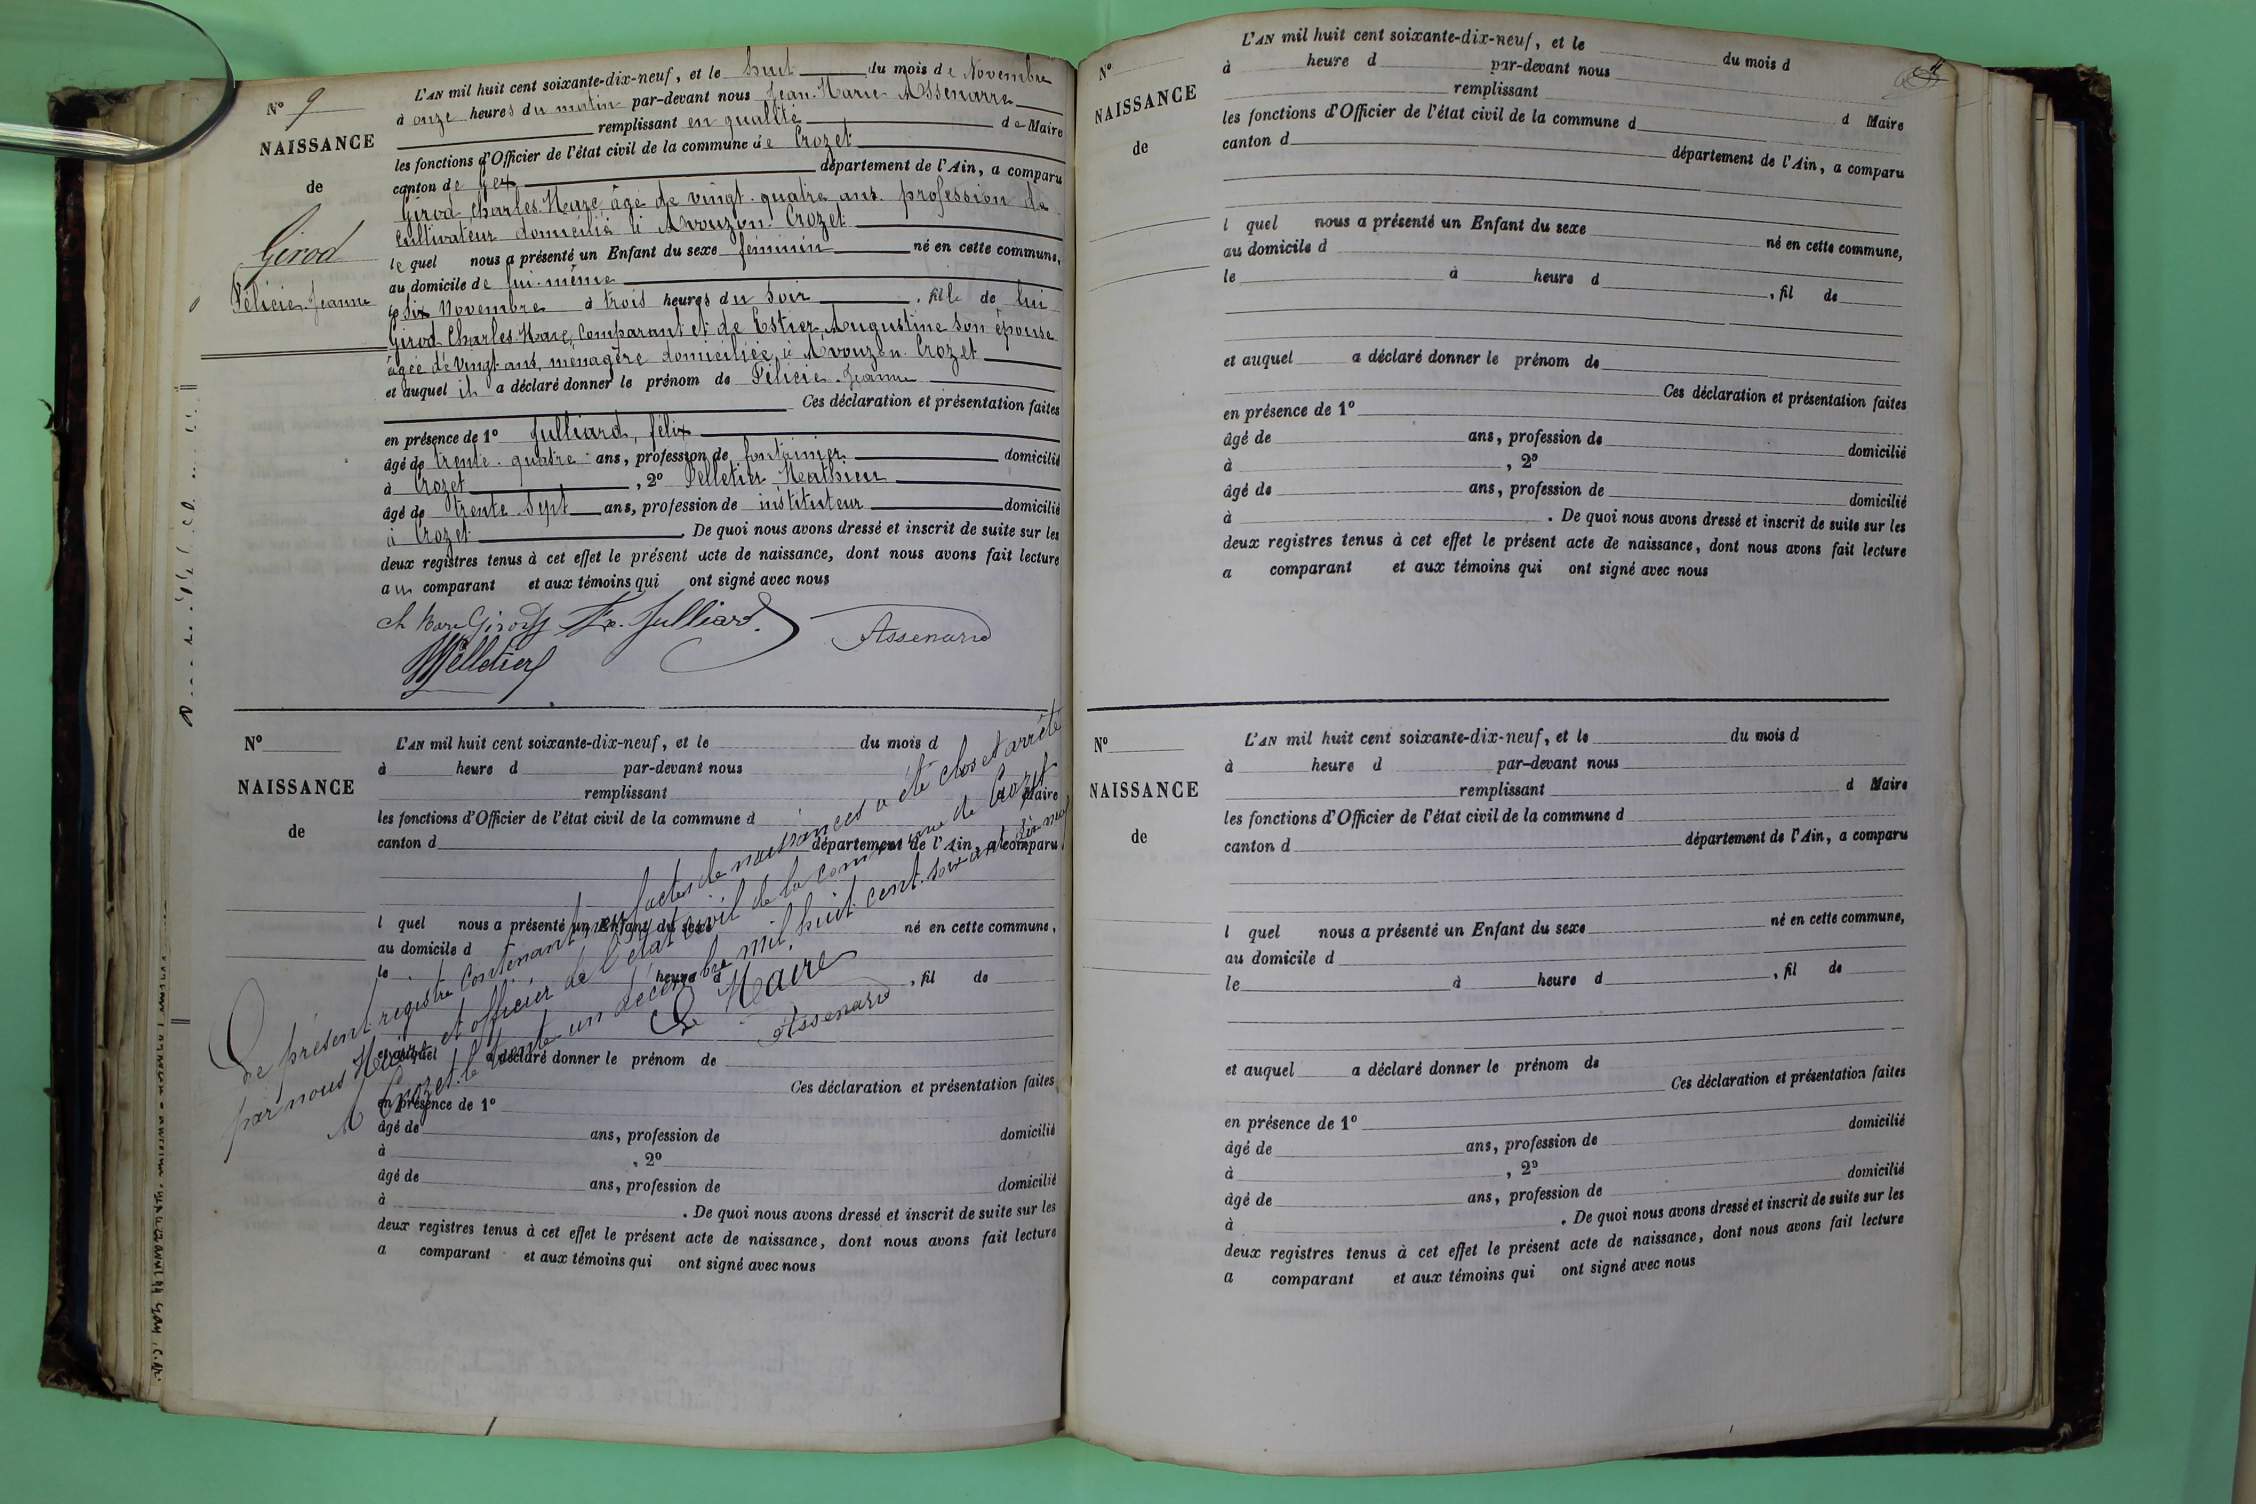 N° 9
NAISSANCE
de
Girod
Félicie Jeanne
L'AN mil huit cent soixante-dix-neuf, et le huit du mois de Novembre
à onze heures du matin par-devant nous Jean-Marie Assenare
remplissant en qualité de Maire
les fonctions d'Officier de l'état civil de la commune de Crozet
canton de Gex département de l'Ain, a comparu
Girod Charles Marc, âgé de vingt-quatre ans profession de
cultivateur domicilié à Avouzon Crozet
lequel nous a présenté un Enfant du sexe féminin né en cette commune,
au domicile de lui-même
le Six Novembre à trois heures du soir, fille de lui
Girod Charles Marc, Comparant et de Estier Augustine son épouse
âgée de vingt ans, ménagère domiciliée à Avouzon Crozet
et auquel il a déclaré donner le prénom de Félicie Jeanne
Ces déclaration et présentation faites
en présence de 1° Julliard, félix
âgé de trente-quatre ans, profession de fontainier domicilié
à Crozet, 2° Pelletier Mathieu
âgé de trente-Sept ans, profession de instituteur domicilié
à Crozet. De quoi nous avons dressé et inscrit de suite sur les
deux registres tenus à cet effet le présent acte de naissance, dont nous avons fait lecture
au comparant et aux témoins qui ont signé avec nous
ch Marc Girod Fx. Julliard. Assenard
Pelletier
N°
NAISSANCE
de
L'AN mil huit cent soixante-dix-neuf, et le du mois d
à heure d par-devant nous
remplissant Maire
les fonctions d'Officier de l'état civil de la commune d
canton d département de l'Ain, a comparu
l quel nous a présenté un Enfant du sexe né en cette commune,
au domicile d
le heure d, fil de
et auquel a déclaré donner le prénom de
Ces déclaration et présentation faites
en présence de 1°
âgé de ans, profession de domicilié
à , 2°
âgé de ans, profession de domicilié
à . De quoi nous avons dressé et inscrit de suite sur les
deux registres tenus à cet effet le présent acte de naissance, dont nous avons fait lecture
a comparant et aux témoins qui ont signé avec nous
Le présent registre contenant neuf actes de naissances a été clos et arrêté
par nous Maire et officier de l'état civil de la commune de Crozet
A Crozet le trente un décembre mil huit cent soixante dix neuf
Le Maire
Assenard
N°
NAISSANCE
de
L'AN mil huit cent soixante-dix-neuf, et le du mois d
à heure d par-devant nous
remplissant d Maire
les fonctions d'Officier de l'état civil de la commune d
canton d département de l'Ain, a comparu
l quel nous a présenté un Enfant du sexe né en cette commune,
au domicile d
le à heure d , fil de
et auquel a déclaré donner le prénom de
Ces déclaration et présentation faites
en présence de 1°
âgé de ans, profession de domicilié
à , 2°
âgé de ans, profession de domicilié
à . De quoi nous avons dressé et inscrit de suite sur les
deux registres tenus à cet effet le présent acte de naissance, dont nous avons fait lecture
a comparant et aux témoins qui ont signé avec nous
N°
NAISSANCE
de
L'AN mil huit cent soixante-dix-neuf, et le du mois d
à heure d par-devant nous
remplissant d Maire
les fonctions d'Officier de l'état civil de la commune d
canton d département de l'Ain, a comparu
l quel nous a présenté un Enfant du sexe né en cette commune,
au domicile d
le à heure d , fil de
et auquel a déclaré donner le prénom de
Ces déclaration et présentation faites
en présence de 1°
âgé de ans, profession de domicilié
à , 2°
âgé de ans, profession de domicilié
à . De quoi nous avons dressé et inscrit de suite sur les
deux registres tenus à cet effet le présent acte de naissance, dont nous avons fait lecture
a comparant et aux témoins qui ont signé avec nous